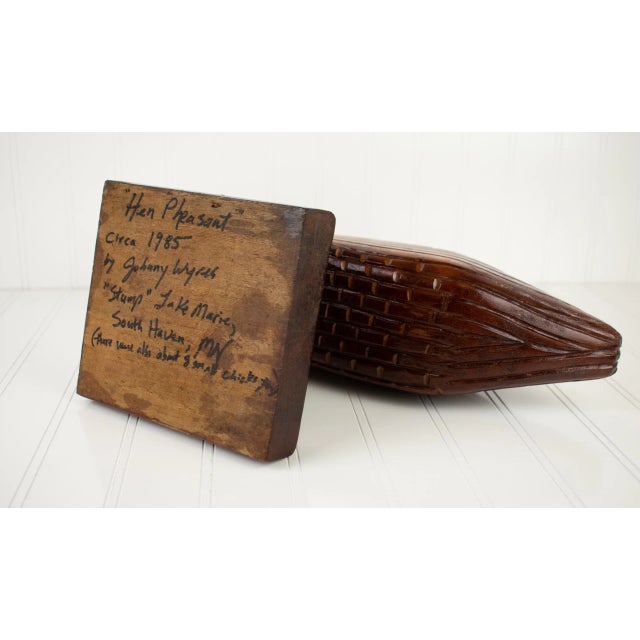 "Hen Pheasant"
circa 1985
by Johnny Wyres
"Stump" Lake Marie,
South Haven, MN
(there were also about 8 small chicks